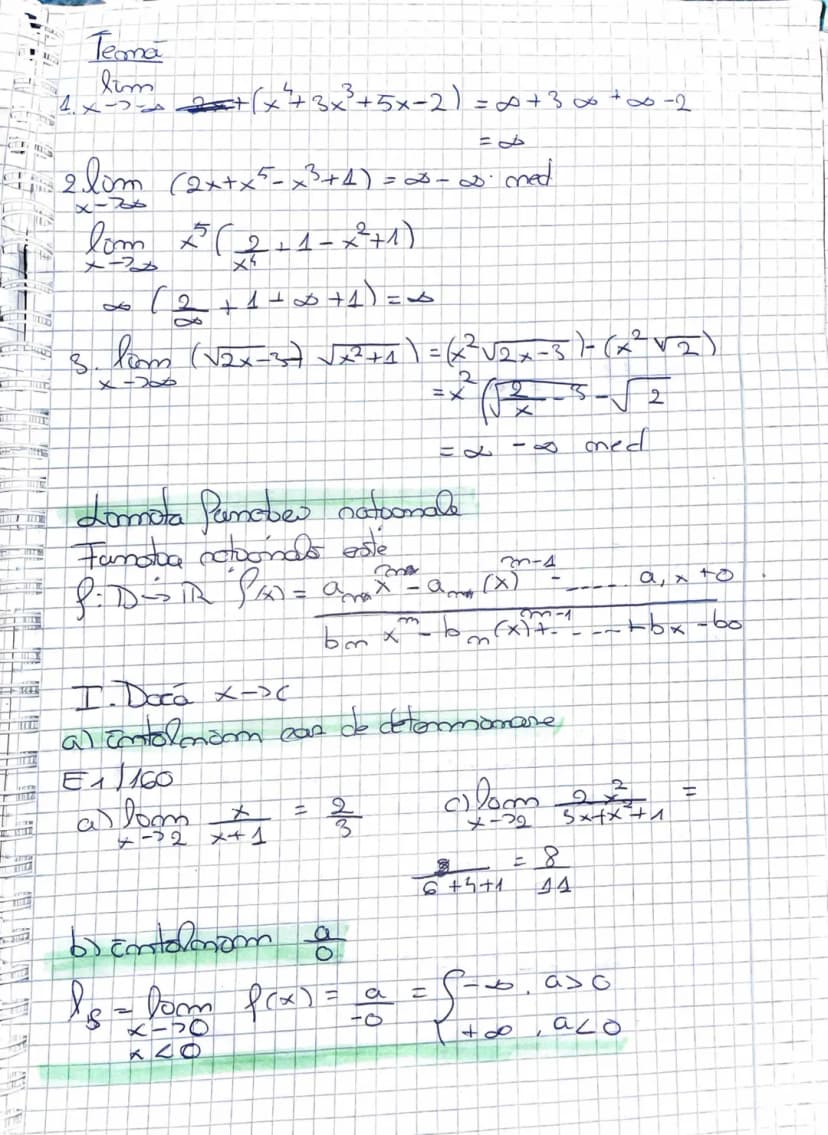 Temă
1. lim x→-∞ (x⁴+3x³+5x-2) = ∞+3∞+∞-2
= ∞
2. lim x→∞ (2x+x⁵-x³+1) = ∞-∞ ned
lim x→∞ x⁵(2/x⁴+1-x²+1)
∞ (2/∞+1+∞+1) = ∞
3. lim x→∞ (√2x-3 - √x²+1) = (x²√2x-3)-(x²√2)
= x²(√2/x-3-√2
= ∞ -∞ ned
Limita funcției raționale
Funcția rațională este
f: D→ℝ f(x) =
I. Dacă x→c
a) întâlnim caz de determinare
E1/160
a) lim x→2 x/x+1 = 2/3 c) lim x→2 2x²/3x+x²+1 =
8/6+4+1 = 8/11
b) întâlnim a/0
ls = lim x→0 x<0 f(x) = a/-0 = { -∞, a>0
+∞, a<0